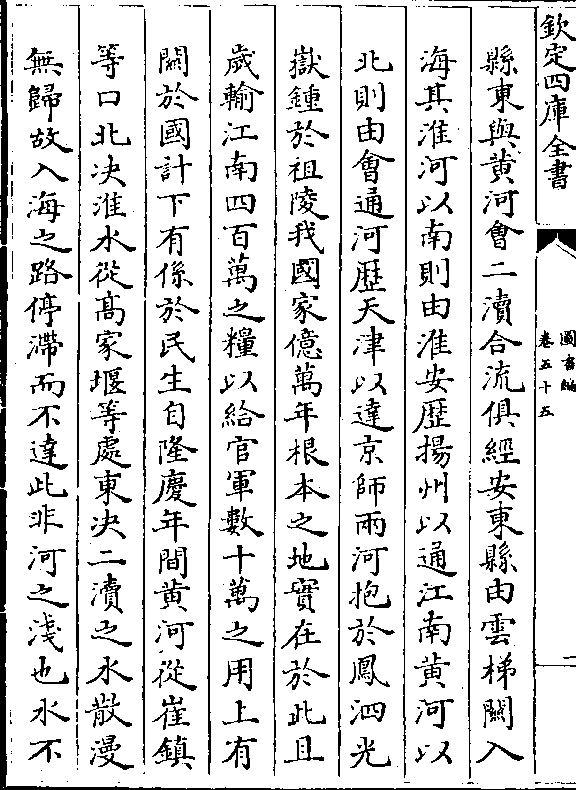 欽定四庫全書
圖書編
卷五十五
一
縣東與黄河會二瀆合流俱經安東縣由雲梯關入
海其淮河以南則由淮安歴揚州以通江南黄河以
北則由會通河歴天津以達京師兩河抱於鳳泗光
嶽鍾於祖陵我國家億萬年根本之地實在於此且
歲輸江南四百萬之糧以給官軍數十萬之用上有
闗於國計下有係於民生自隆慶年間黄河從崔鎮
等口北决淮水從髙家堰等處東决二瀆之水散漫
無歸故入海之路停滯而不達此非河之淺也水不